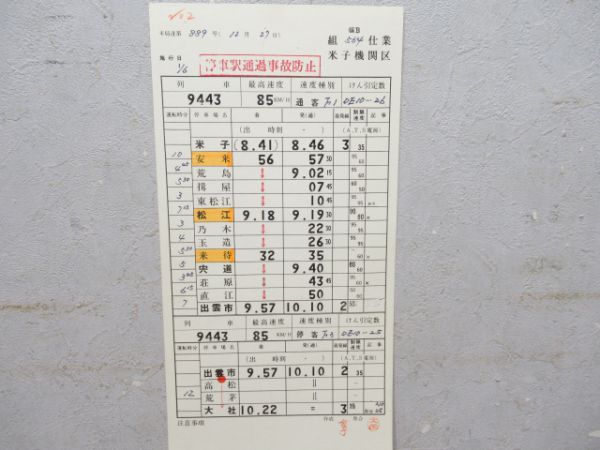 米局達第 889 号( 12 月 27 日)
組 564 仕業
米子機関区
施行日 1/6
停車駅通過事故防止
列 車 最高速度 速度種別 けん引定数
9443 85KM/H 通客
運転時分 停車場名 着 発(通) 着発線 制限速度 記事
(出 時刻 ・ ) (A.T.S電源)
米子 (8.41) 8.46 3 35
10 安来 56 57 30
荒島 ↓ 9.02 15
揖屋 ↓ 07 45
東松江 ↓ 10 45
松江 9.18 9.19 30
3 乃木 ↓ 22 30
4 玉造 ↓ 26 30
来待 32 35
5 宍道 ↓ 9.40
荘原 ↓ 43 45
直江 ↓ 50
7 出雲市 9.57 10.10 2
列 車 最高速度 速度種別 けん引定数
9443 85KM/H 停客
運転時分 停車場名 着 発(通) 着発線 制限速度 記事
(出 時刻 ・ ) (A.T.S電源)
出雲市 9.57 10.10 2 35
高松 ↓ ||
12 荒茅 ↓ ||
大社 10.22 = 3
注意事項 作成 照合